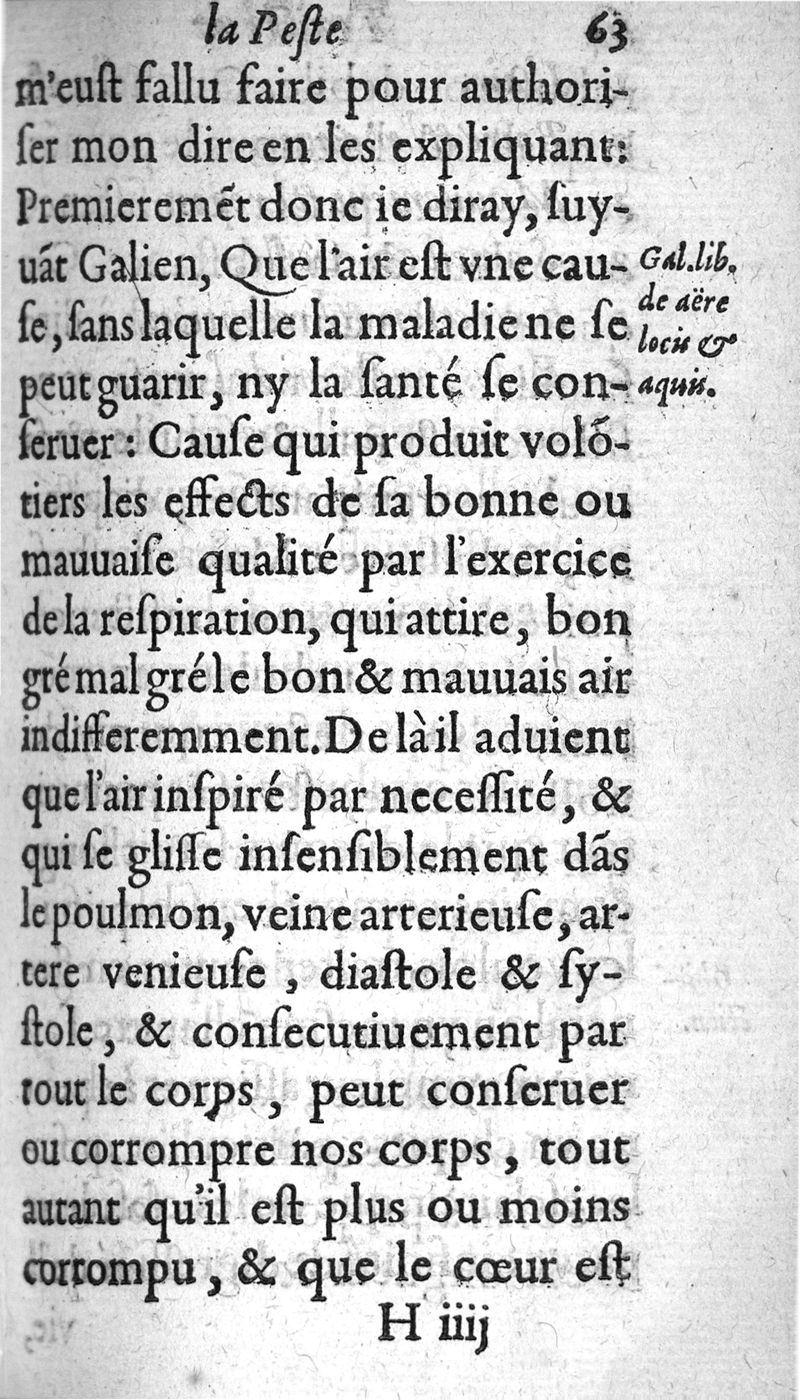 la Peſte 63
m'euſt fallu faire pour authori-
ſer mon dire en les expliquant:
Premieremẽt donc ie diray, ſuy-
uãt Galien, Que l'air eſt vne cau-
ſe, ſans laquelle la maladie ne ſe
peut guarir, ny la ſanté ſe con-
ſeruer : Cauſe qui produit volõ-
tiers les effects de ſa bonne ou
mauuaiſe qualité par l'exercice
de la reſpiration, qui attire, bon
gré mal gré le bon & mauuais air
indifferemment. De là il aduient
que l'air inſpiré par neceſſité, &
qui ſe gliſſe inſenſiblement dãs
le poulmon, veine arterieuſe, ar-
tere venieuſe, diaſtole & ſy-
ſtole, & conſecutiuement par
tout le corps, peut conſeruer
ou corrompre nos corps, tout
autant qu'il eſt plus ou moins
corrompu, & que le cœur eſt
H iiij
Gal. lib.
de aëre
locis &
aquis.